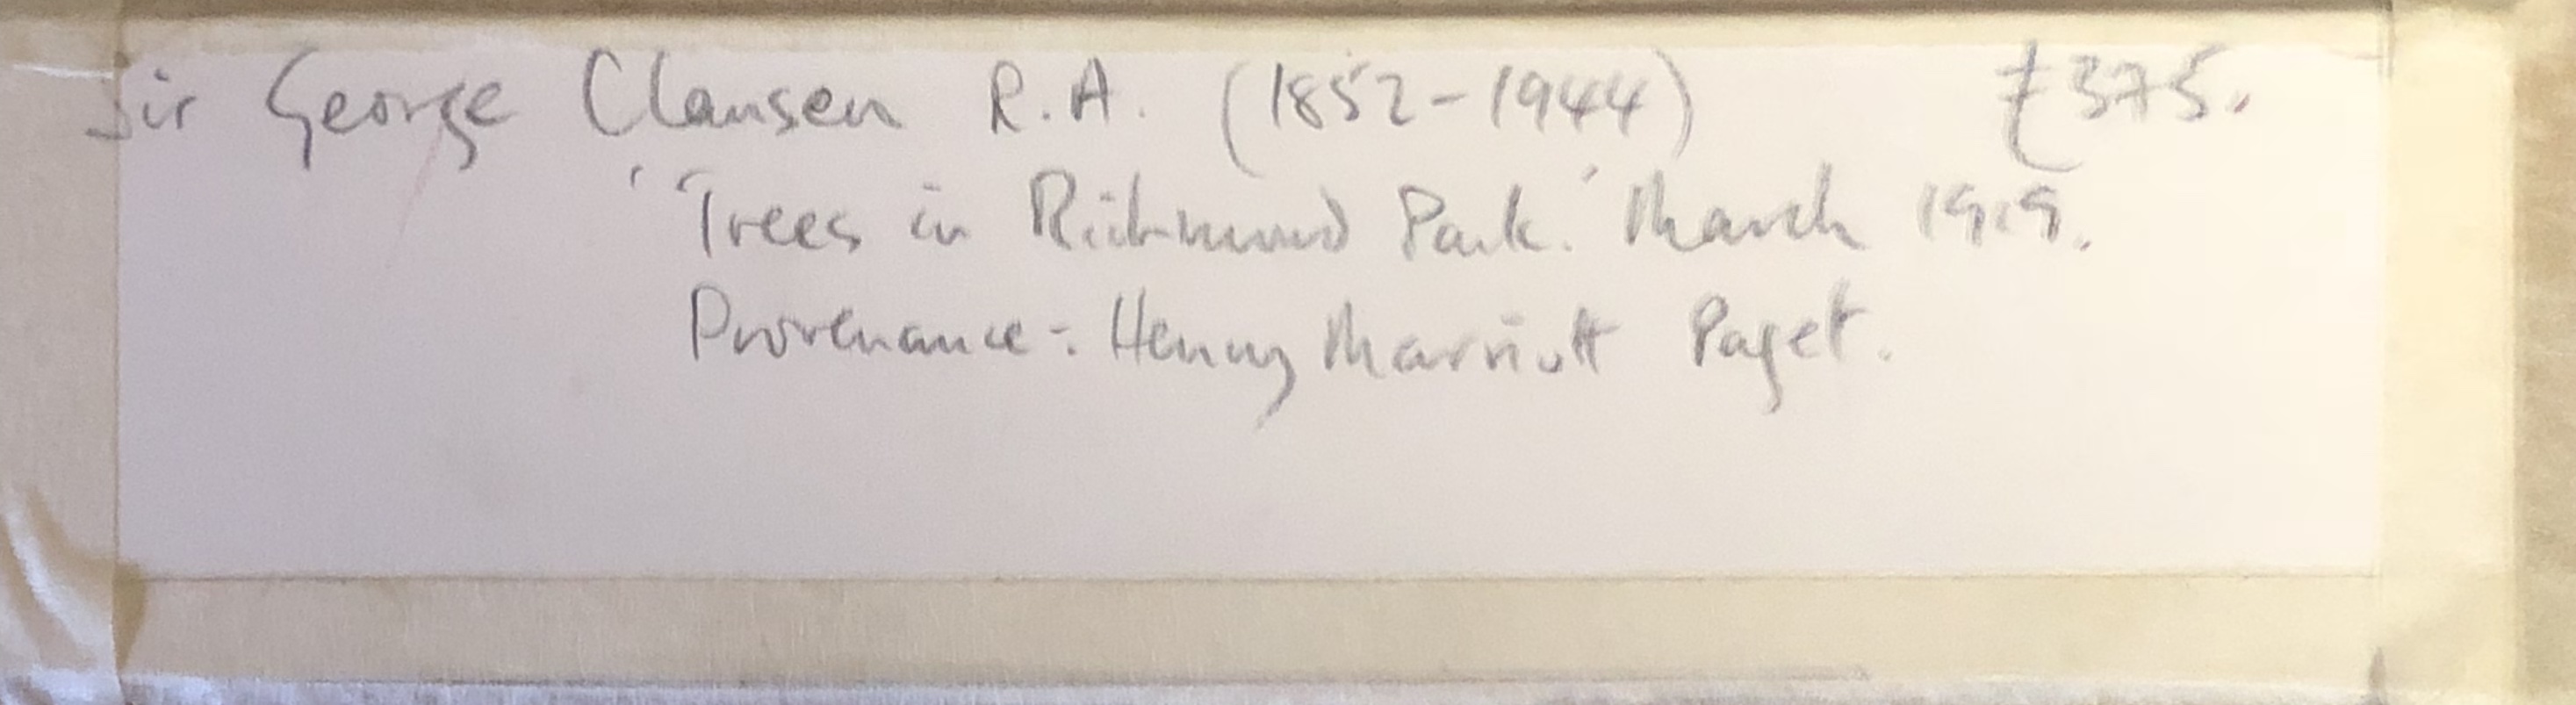 Sir George Clausen R.A. (1852-1944) £375.
'Trees in Richmond Park.' March 1919.
Provenance:- Henry Marriott Paget.